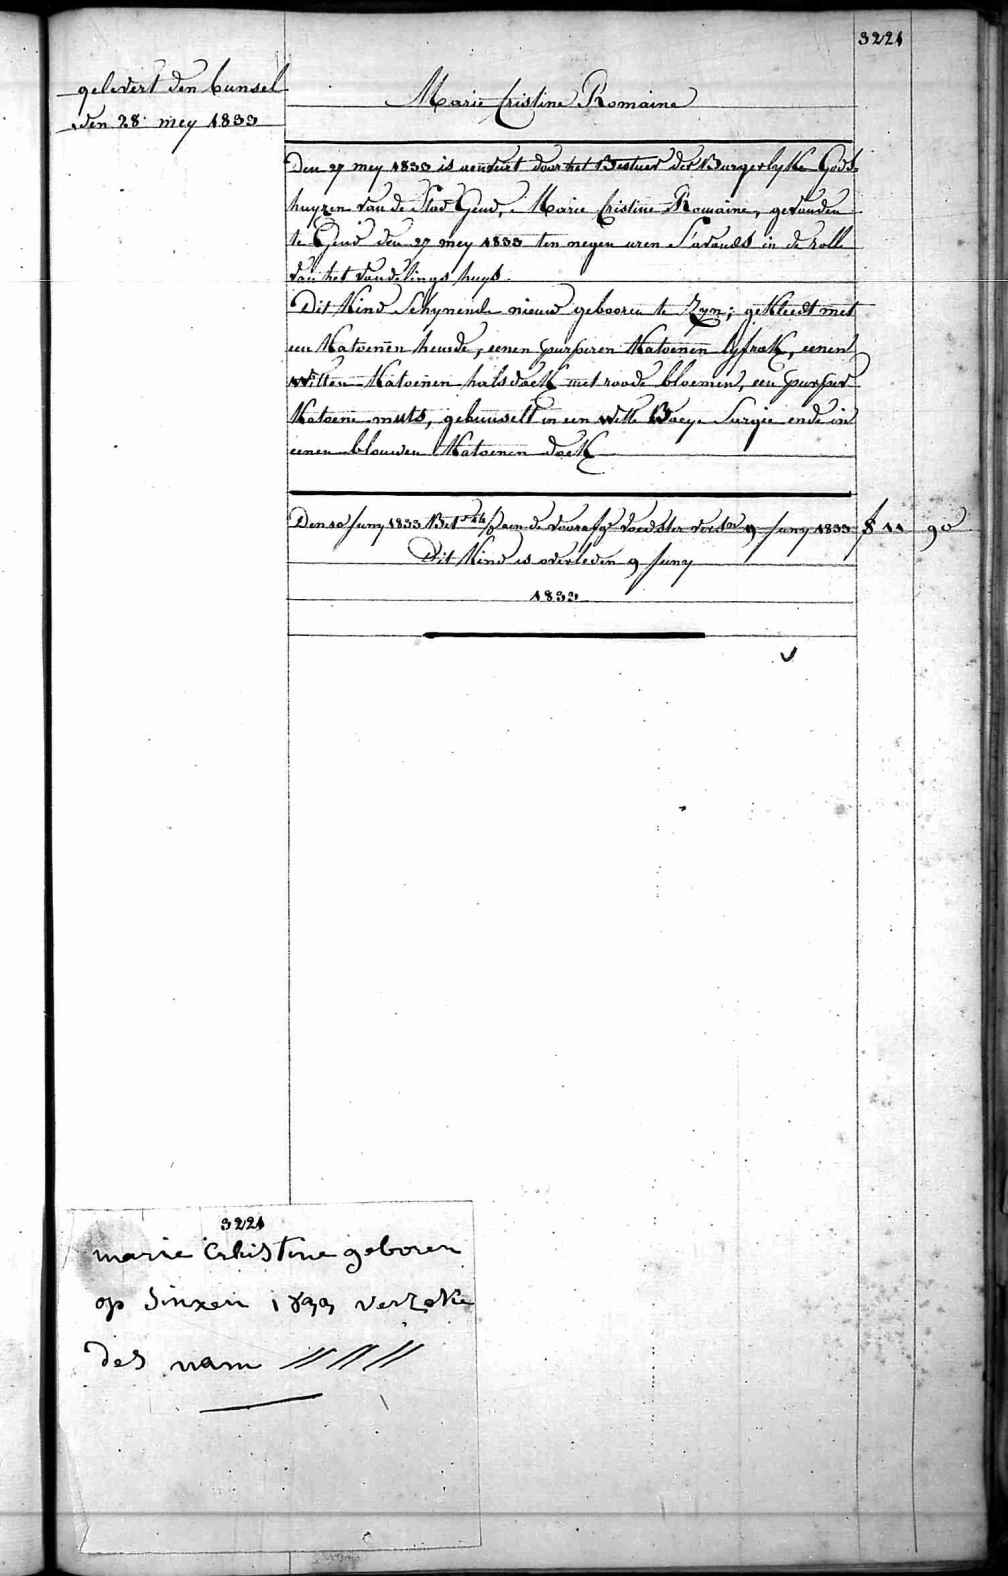 3221
gelevert den bunsel
den 28 mey 1833
Marie Cristine Romaine
Den 27 mey 1833 is aenveirt door het Bestuer der Burgerlyke Gods-
huyzen van de Stad Gend, Marie Cristine Romaine, gevonden
te Gend den 27 mey 1833 ten negen uren S'avonds in de rolle
van het vondelings huys.
Dit Kind Schynende nieuw gebooren te Zyn; gekleedt met
een Katoenen hemde, eenen purperen Katoenen lyfrok, eenen
witten Katoenen halsdoek met roode bloemen, een purper
Katoene muts, gebunselt in een witte Baeye Surgie ende in
eenen blouwen Katoenen doek
Den 10 Juny 1833 aen de voedster 9 Juny 1833 f 8 11 90
Dit Kind is overleden 9 Juny
1833
3221
marie Christine geboren
op Sinxen 1833 verzoke
des nam